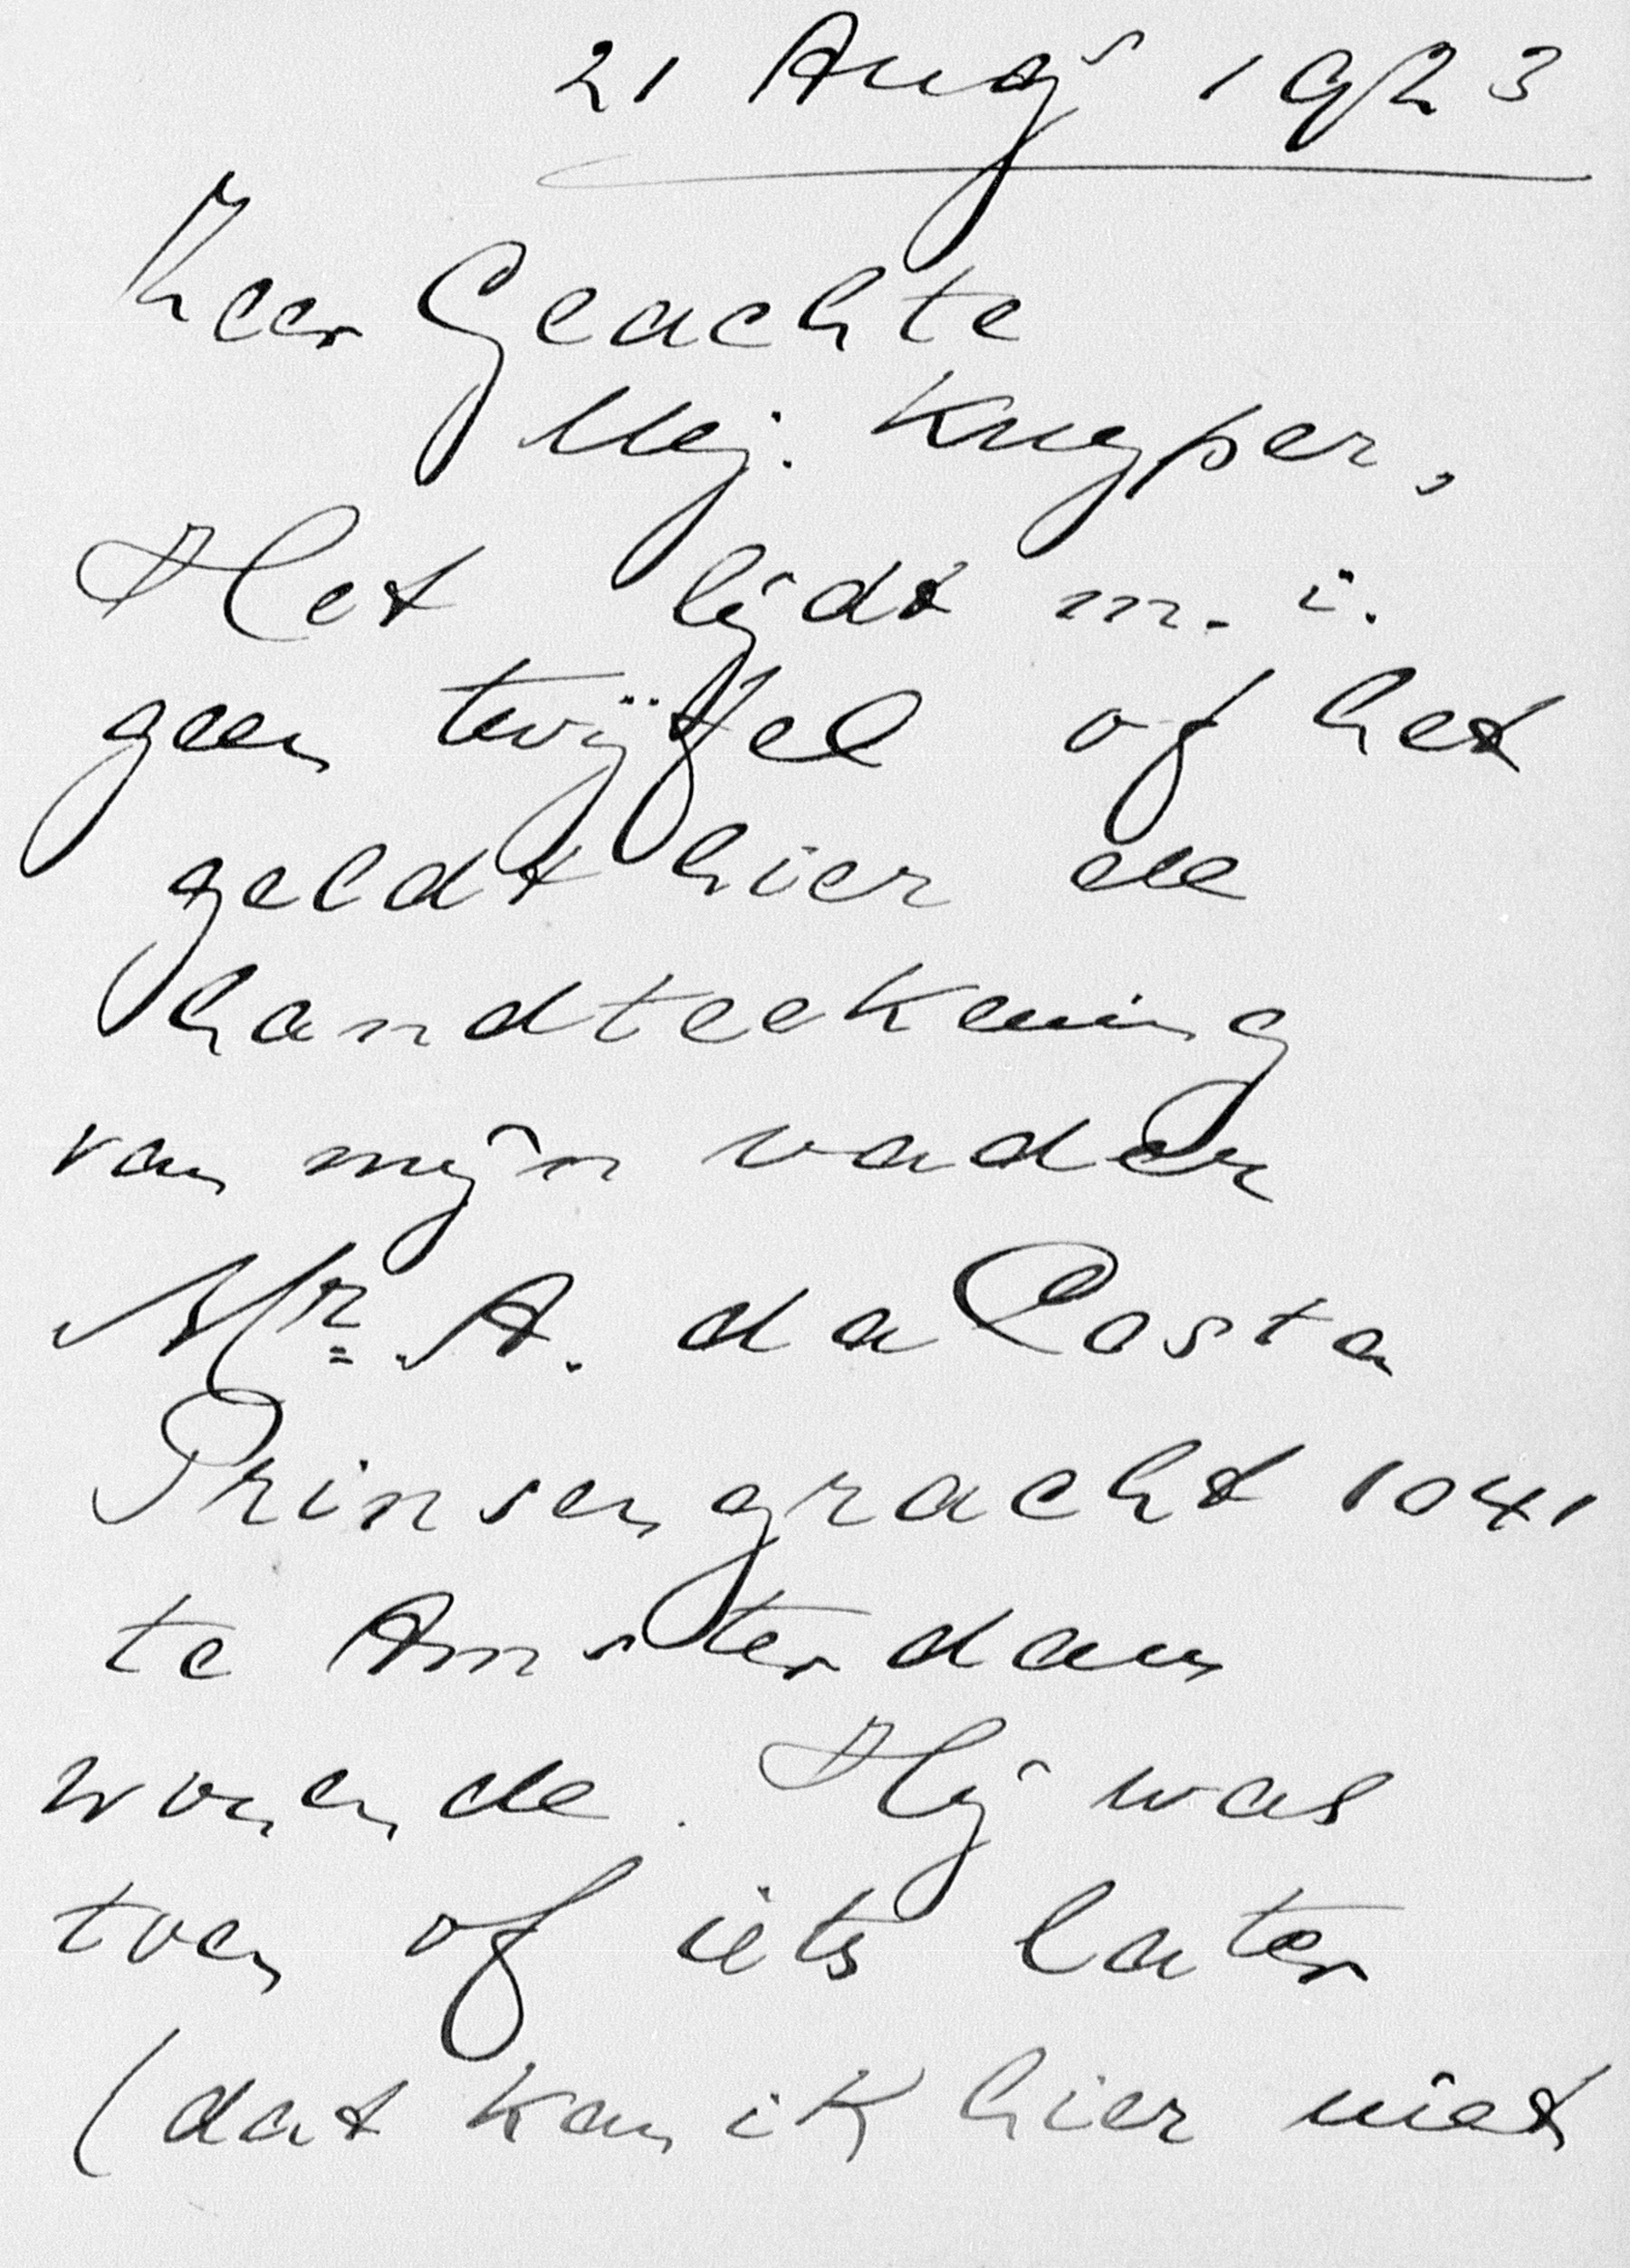 21 Aug^s 1923
Zeer Geachte
Mej. Kuyper,
Het lijdt m. i.
geen twijfel of het
geldt hier de
handteekening
van mijn vader
Mr. A. da Costa
Prinsengracht 1041
te Amsterdam
wonende. Hij was
toen of iets later
(dat kan ik hier niet